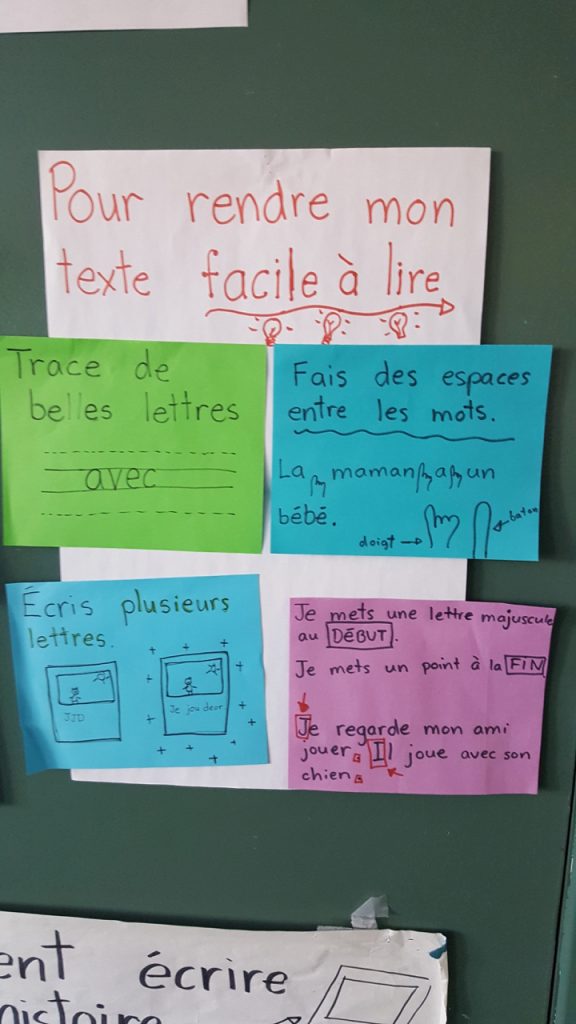 Pour rendre mon
texte facile à lire
Trace de
belles lettres
avec
Fais des espaces
entre les mots.
La maman a un
bébé.
doigt
baton
Écris plusieurs
lettres.
JJD
Je jou deor
Je mets une lettre majuscule
au DÉBUT.
Je mets un point à la FIN
Je regarde mon ami
jouer. Il joue avec son
chien.
ent écrire
histoire